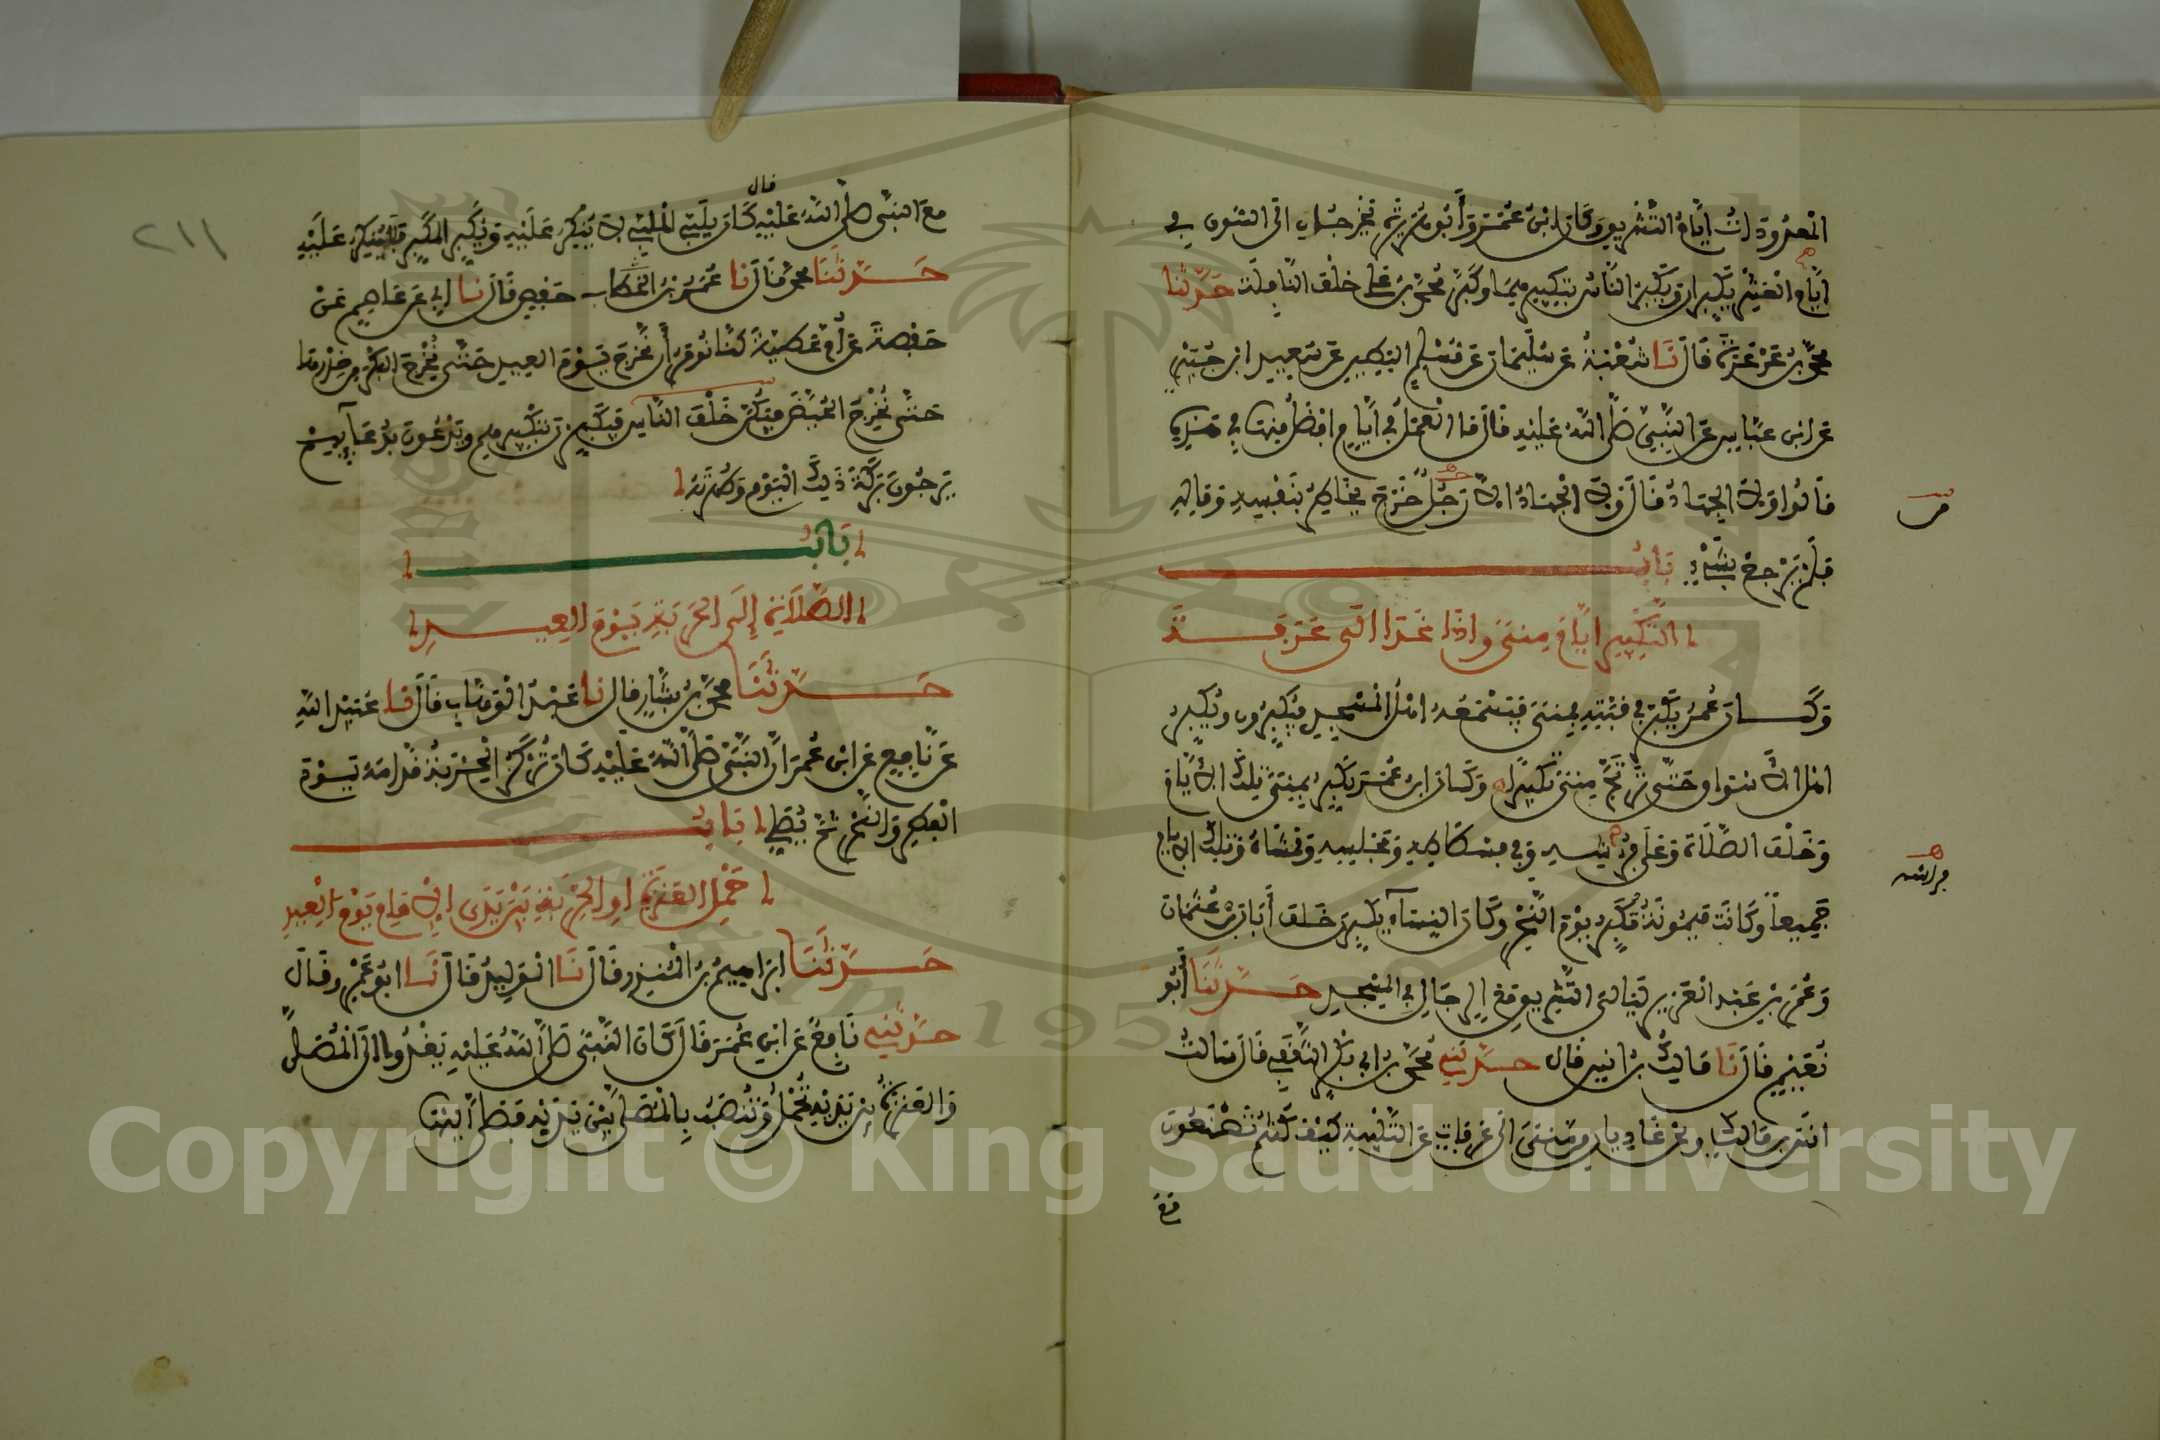 المعدودات أيام التشريق وكان ابن عمر وأبو هريرة يخرجان إلى السوق في
أيام العشر يكبران ويكبر الناس بتكبيرهما وكبر محمد بن علي خلف النافلة حدثنا
محمد بن عرعرة قال نا شعبة عن سليمان عن مسلم البطين عن سعيد ابن جبير
عن ابن عباس عن النبي صلى الله عليه قال ما العمل في أيام افضل منها في هذه
قالوا ولا الجهاد قال ولا الجهاد الا رجل خرج يخاطر بنفسه وماله
فلم يرجع بشيء باب
التكبير ايام منى واذا غدا الى عرفة
وكان عمر يكبر في قبته بمنى فيسمعه اهل المسجد فيكبرون ويكبر
اهل الاسواق حتى ترتج منى تكبيرا وكان ابن عمر يكبر بمنى تلك الايام
وخلف الصلاة وعلى فرشه وفي فسطاطه ومجلسه وممشاه وتلك الايام
فراشه
جميعا وكانت ميمونة تكبر يوم النحر وكان النساء يكبرن خلف أبان بن عثمان
وعمر بن عبد العزيز ليالي التشريق مع الرجال في المسجد حدثنا أبو
نعيم قال نا مالك بن انس قال حدثني محمد بن ابي بكر الثقفي قال سالت
انس بن مالك ونحن غاديان من منى الى عرفات عن التلبية كيف كنتم تصنعون
مع
مع النبي صلى الله عليه كان يلبي الملبي لا ينكر عليه ويكبر المكبر فلا ينكر عليه
قال
حدثنا محمد قال نا عمر بن حفص قال نا ابي عن عاصم عن
حفصة عن أم عطية كنا نومر أن نخرج يوم العيد حتى نخرج البكر من خدرها
حتى نخرج الحيض فيكن خلف الناس فيكبرن بتكبيرهم ويدعون بدعآيهم
يرجون بركة ذلك اليوم وطهرته
باب
الصلاة إلى الحربة يوم العيد
حدثنا محمد بن بشار قال نا عبد الوهاب قال نا عبيد الله
عن نافع عن ابن عمر ان النبي صلى الله عليه كان تركز الحربة قدامه يوم
الفطر والنحر ثم يصلي باب
حمل العنزة او الحربة بين يدي الامام يوم العيد
حدثنا ابراهيم بن المنذر قال نا الوليد قال نا ابو عمرو قال
حدثني نافع عن ابن عمر قال كان النبي صلى الله عليه يغدوا الى المصلى
والعنزة بين يديه تحمل وتنصب بالمصلى بين يديه فيصلى اليها
٢١١
Copyright © King Saud University
1957